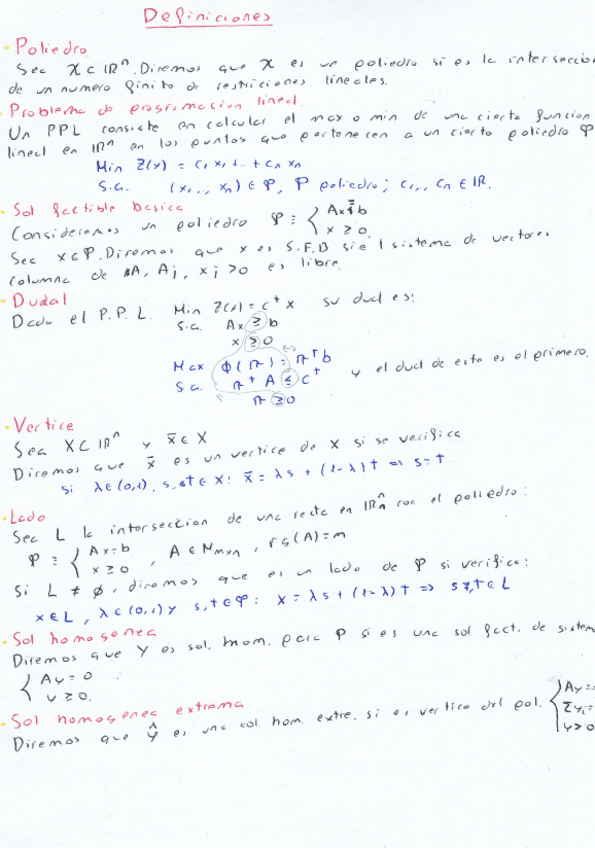 Definiciones
Poliedro
Sea X ⊂ ℝⁿ. Diremos que X es un poliedro si es la interseccion
de un numero finito de restricciones lineales.
Problema de programacion lineal.
Un PPL consiste en calcular el max o min de una cierta funcion
lineal en ℝⁿ en los puntos que pertenecen a un cierto poliedro P
Min Z(x) = c₁x₁ + ... + cₙxₙ
s.a. (x₁,..., xₙ) ∈ P, P poliedro; c₁,.., cₙ ∈ ℝ.
Sol factible basica
Consideremos un poliedro P ≡ { Ax = b
x ≥ 0
Sea x ∈ P. Diremos que x es S.F.B si el sistema de vectores
columna de A, Aj, xj > 0 es libre.
Dual
Dado el P.P.L. Min Z(x) = cᵗx su dual es:
s.a. Ax ≥ b
x ≥ 0
Max Φ(π) = πᵗb
s.a. πᵗA ≤ cᵗ y el dual de este es el primero.
π ≥ 0
Vertice
Sea X ⊂ ℝⁿ y x̄ ∈ X
Diremos que x̄ es un vertice de X si se verifica
si λ ∈ (0,1), s, t ∈ X: x̄ = λs + (1-λ)t ⇒ s = t
Lado
Sea L la interseccion de una recta en ℝⁿ con el poliedro:
P ≡ { Ax = b
x ≥ 0 , A ∈ Mmxn, rg(A) = m
Si L ≠ ∅, diremos que es un lado de P si verifica:
x ∈ L, λ ∈ (0,1) y s, t ∈ P: x = λs + (1-λ)t ⇒ s, t ∈ L
Sol homogenea
Diremos que y es sol. hom. para P si es una sol fact. de sistema
{ Ay = 0
y ≥ 0.
Sol homogenea extrema
Diremos que ŷ es una sol. hom. extre. si es vertice del pol. { Ay =
Σyi =
y ≥ 0